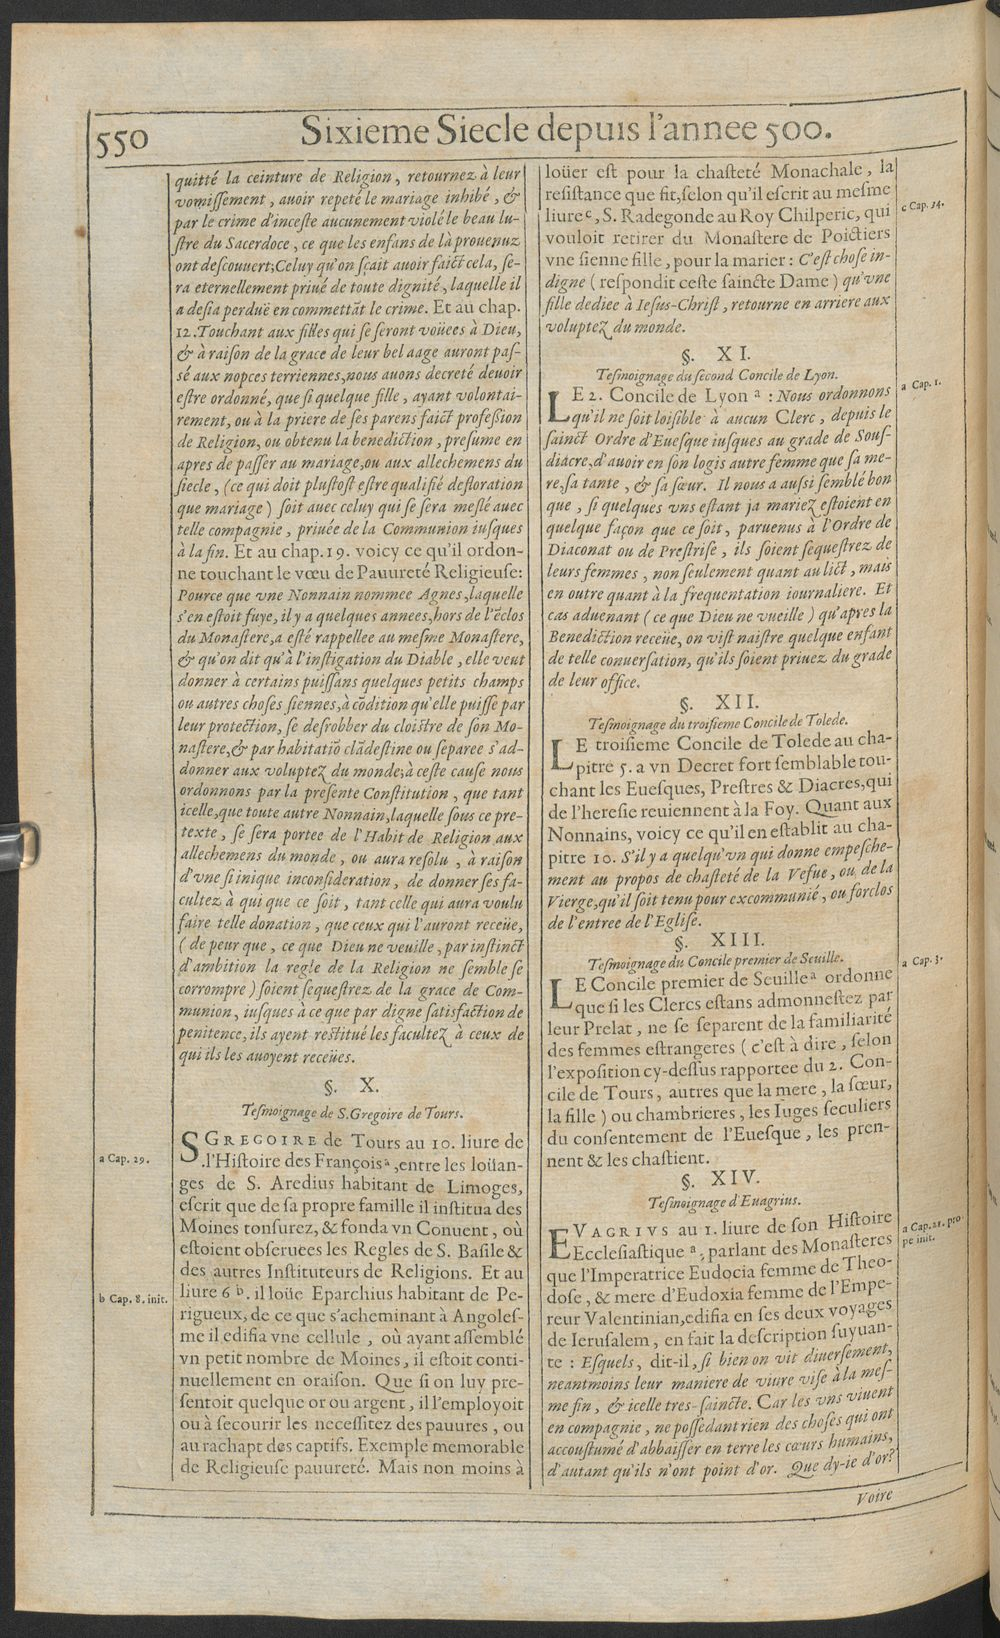 550
Sixieme Siecle depuis l'annee 500.
quitté la ceinture de Religion, retournez à leur
vomissement, auoir repeté le mariage inhibé, &
par le crime d'inceste aucunement violé le beau lu-
stre du Sacerdoce, ce que les enfans de là prouenuz
ont descouuert; Celuy qu'on sçait auoir faict cela, se-
ra eternellement priué de toute dignité, laquelle il
a desia perduë en commettãt le crime. Et au chap.
12. Touchant aux filles qui se seront voüees à Dieu,
& à raison de la grace de leur bel aage auront pas-
sé aux nopces terriennes, nous auons decreté deuoir
estre ordonné, que si quelque fille, ayant volontai-
rement, ou à la priere de ses parens faict profession
de Religion, ou obtenu la benediction, presume en
apres de passer au mariage, ou aux allechemens du
siecle, (ce qui doit plustost estre qualifié defloration
que mariage) soit auec celuy qui se sera meslé auec
telle compagnie, priuée de la Communion iusques
à la fin. Et au chap. 19. voicy ce qu'il ordon-
ne touchant le vœu de Pauureté Religieuse:
Pource que vne Nonnain nommee Agnes, laquelle
s'en estoit fuye, il y a quelques annees, hors de l'ẽclos
du Monastere, a esté rappellee au mesme Monastere,
& qu'on dit qu'à l'instigation du Diable, elle veut
donner à certains puissans quelques petits champs
ou autres choses siennes, à cõdition qu'elle puisse par
leur protection, se desrobber du cloistre de son Mo-
nastere, & par habitatiõ clãdestine ou separee s'ad-
donner aux voluptez du monde; à ceste cause nous
ordonnons par la presente Constitution, que tant
icelle, que toute autre Nonnain, laquelle sous ce pre-
texte, se sera portee de l'Habit de Religion aux
allechemens du monde, ou aura resolu, à raison
d'vne si inique inconsideration, de donner ses fa-
cultez à qui que ce soit, tant celle qui aura voulu
faire telle donation, que ceux qui l'auront receüe,
(de peur que, ce que Dieu ne veuille, par instinct
d'ambition la regle de la Religion ne semble se
corrompre) soient sequestrez de la grace de Com-
munion, iusques à ce que par digne satisfaction de
penitence, ils ayent restitué les facultez à ceux de
qui ils les auoyent receües.
§. X.
Tesmoignage de S. Gregoire de Tours.
S GREGOIRE de Tours au 10. liure de
.l'Histoire des François a, entre les loüan-
a Cap. 29.
ges de S. Aredius habitant de Limoges,
escrit que de sa propre famille il institua des
Moines tonsurez, & fonda vn Conuent, où
estoient obseruees les Regles de S. Basile &
des autres Instituteurs de Religions. Et au
liure 6 b. il loüe Eparchius habitant de Pe-
b Cap. 8. init.
rigueux, de ce que s'acheminant à Angoles-
me il edifia vne cellule, où ayant assemblé
vn petit nombre de Moines, il estoit conti-
nuellement en oraison. Que si on luy pre-
sentoit quelque or ou argent, il l'employoit
ou à secourir les necessitez des pauures, ou
au rachapt des captifs. Exemple memorable
de Religieuse pauureté. Mais non moins à
loüer est pour la chasteté Monachale, la
resistance que fit, selon qu'il escrit au mesme
liure c, S. Radegonde au Roy Chilperic, qui
c Cap. 34.
vouloit retirer du Monastere de Poictiers
vne sienne fille, pour la marier: C'est chose in-
digne (respondit ceste saincte Dame) qu'vne
fille dediee à Iesus-Christ, retourne en arriere aux
voluptez du monde.
§. XI.
Tesmoignage du second Concile de Lyon.
LE 2. Concile de Lyon a: Nous ordonnons
a Cap. 1.
qu'il ne soit loisible à aucun Clerc, depuis le
sainct Ordre d'Euesque iusques au grade de Sous-
diacre, d'auoir en son logis autre femme que sa me-
re, sa tante, & sa sœur. Il nous a aussi semblé bon
que, si quelques vns estant ja mariez estoient en
quelque façon que ce soit, paruenus à l'Ordre de
Diaconat ou de Prestrise, ils soient sequestrez de
leurs femmes, non seulement quant au lict, mais
en outre quant à la frequentation iournaliere. Et
cas aduenant (ce que Dieu ne vueille) qu'apres la
Benediction receüe, on vist naistre quelque enfant
de telle conuersation, qu'ils soient priuez du grade
de leur office.
§. XII.
Tesmoignage du troisieme Concile de Tolede.
LE troisieme Concile de Tolede au cha-
pitre 5. a vn Decret fort semblable tou-
chant les Euesques, Prestres & Diacres, qui
de l'heresie reuiennent à la Foy. Quant aux
Nonnains, voicy ce qu'il en establit au cha-
pitre 10. S'il y a quelqu'vn qui donne empesche-
ment au propos de chasteté de la Vefue, ou de la
Vierge, qu'il soit tenu pour excommunié, ou forclos
de l'entree de l'Eglise.
§. XIII.
Tesmoignage du Concile premier de Seuille.
LE Concile premier de Seuille a ordonne
a Cap. 3.
que si les Clercs estans admonnestez par
leur Prelat, ne se separent de la familiarité
des femmes estrangeres (c'est à dire, selon
l'exposition cy-dessus rapportee du 2. Con-
cile de Tours, autres que la mere, la sœur,
la fille) ou chambrieres, les Iuges seculiers
du consentement de l'Euesque, les pren-
nent & les chastient.
§. XIV.
Tesmoignage d'Euagrius.
EVAGRIVS au 1. liure de son Histoire
Ecclesiastique a, parlant des Monasteres
a Cap. 21. pro-
pe init.
que l'Imperatrice Eudocia femme de Theo-
dose, & mere d'Eudoxia femme de l'Empe-
reur Valentinian, edifia en ses deux voyages
de Ierusalem, en fait la description suyuan-
te: Esquels, dit-il, si bien on vit diuersement,
neantmoins leur maniere de viure vise à la mes-
me fin, & icelle tres-saincte. Car les vns viuent
en compagnie, ne possedant rien des choses qui ont
accoustumé d'abbaisser en terre les cœurs humains,
d'autant qu'ils n'ont point d'or. Que dy-ie d'or?
Voire